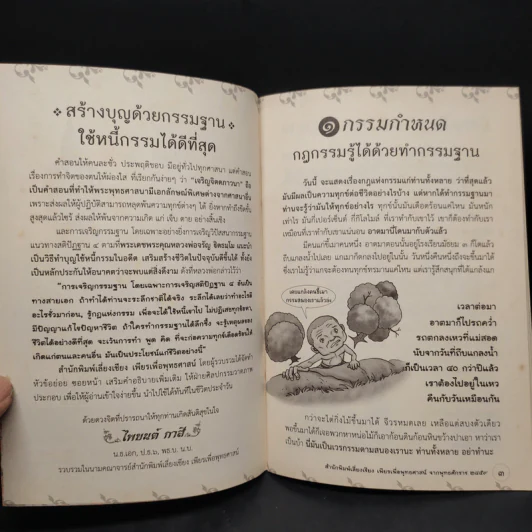 สร้างบุญด้วยกรรมฐาน
ใช้หนี้กรรมได้ดีที่สุด
คำสอนให้คนละชั่ว ประพฤติชอบ มีอยู่ทั่วไปทุกศาสนา แต่คำสอน
เรื่องการทำจิตของตนให้ผ่องใส ที่เรียกกันง่ายๆ ว่า "เจริญจิตตภาวนา" ถือ
เป็นคำสอนที่ทำให้พระพุทธศาสนามีเอกลักษณ์พิเศษต่างจากศาสนาอื่น
เพราะส่งผลให้ผู้ปฏิบัติสามารถหลุดพ้นความทุกข์ต่างๆ ได้ ยิ่งหากทำถึงขีดขั้น
สูงสุดแล้วไซร้ ส่งผลให้พ้นจากความเกิด แก่ เจ็บ ตาย อย่างสิ้นเชิง
และการเจริญกรรมฐาน โดยเฉพาะอย่างยิ่งการเจริญวิปัสสนากรรมฐาน
แนวทางสติปัฏฐาน ๔ ตามที่พระเดชพระคุณหลวงพ่อจรัญ ฐิตธมฺโม แนะนำ
เป็นวิธีทำบุญใช้หนี้กรรมในอดีต เสริมสร้างชีวิตในปัจจุบันให้ดีขึ้นได้ ทั้งยัง
เป็นหลักประกันให้อนาคตว่าจะพบแต่สิ่งดีงาม ดังที่หลวงพ่อกล่าวไว้ว่า
"การเจริญกรรมฐาน โดยเฉพาะการเจริญสติปัฏฐาน ๔ อันเป็น
ทางสายเอก ถ้าทำได้ท่านจะระลึกชาติได้จริง ระลึกได้เลยว่าทำอะไรที่
อะไรชั่วมาก่อน, รู้กฎแห่งกรรม เพื่อจะได้ใช้หนี้เขาไป ไม่ปฏิเสธทุกข้อหา,
มีปัญญาแก้ไขปัญหาชีวิต ถ้าใครทำกรรมฐานได้ลึกซึ้ง จะรู้เหตุผลของ
ชีวิตได้อย่างดีที่สุด จะเว้นการทำ พูด คิด ที่จะก่อความทุกข์เดือดร้อนให้
เกิดแก่ตนและคนอื่น มันเป็นประโยชน์แก่ชีวิตอย่างนี้"
สำนักพิมพ์เลี่ยงเชียง เพียรเพื่อพุทธศาสน์ โดยผู้รวบรวมได้จัดทำ
หัวข้อย่อย ซอยหน้า เสริมคำอธิบายเพิ่มเติม ให้ฝ่ายศิลปกรรมวาดภาพ
ประกอบ เพื่อให้ผู้อ่านเข้าใจง่ายขึ้น นำไปใช้ได้ทันทีในชีวิตประจำวัน
ด้วยดวงจิตที่ปรารถนาให้ทุกท่านเกิดสันติสุขในใจ
ไชยยนต์ กาสี
น.ธ.เอก, ป.ธ.๖, พธ.บ. น.บ.
รวบรวมในนามคณาจารย์สำนักพิมพ์เลี่ยงเชียง เพียรเพื่อพุทธศาสน์
๑ กรรมกำหนด
กฎกรรมรู้ได้ด้วยทำกรรมฐาน
วันนี้ จะแสดงเรื่องกฎแห่งกรรมแก่ท่านทั้งหลาย ว่าที่สุดแล้ว
มันมีผลเป็นความทุกข์ต่อชีวิตอย่างไรบ้าง แต่หากได้ทำกรรมฐานมา
ท่านจะรู้ว่ามันให้ทุกข์อย่างไร ทุกข์นั้นมันเดือดร้อนแค่ไหน มันหนัก
เท่าไร มันกี่เปอร์เซ็นต์ กี่กิโลไมล์ ที่เราทำกับเขาไว้ เขาก็ต้องทำกับเรา
เหมือนที่เราทำกับเขาแน่นอน อาตมานี่โดนมากับตัวแล้ว
มีคนแก่ชื่อมาคนหนึ่ง อาตมาตอนนั้นอยู่โรงเรียนมัธยม ๓ ก็โตแล้ว
ถีบแกลงน้ำไปเลย แกเมาก็ตกลงไปอยู่ในน้ำ วันหนึ่งคืนหนึ่งถึงจะขึ้นมาได้
ซึ่งเราไม่รู้ว่าแกจะต้องทนทุกข์ทรมานแค่ไหน แต่เรารู้สึกสนุกที่ได้แกล้งแก
เวลาต่อมา
อาตมาก็ไปรถคว่ำ
รถตกลงเหวที่แม่สอด
นับจากวันที่ถีบแกลงน้ำ
ก็เป็นเวลา ๔๐ กว่าปีแล้ว
เราต้องไปอยู่ในเหว
คืนกับวันเหมือนกัน
กว่าจะไต่กิ่งไม้ขึ้นมาได้ จีวรหมดเลย เหลือแต่สบงตัวเดียว
พอขึ้นมาได้ก็เจอพวกหาหน่อไม้ก็เอาก้อนดินก้อนหินขว้างปาเอา หาว่าเรา
เป็นบ้า นี่มันเป็นเวรกรรมตามสนองเรานะ ท่านทั้งหลาย อย่าทำนะ
สำนักพิมพ์เลี่ยงเชียง เพียรเพื่อพุทธศาสน์ จากพุทธศักราช ๒๔๕๙ ๓